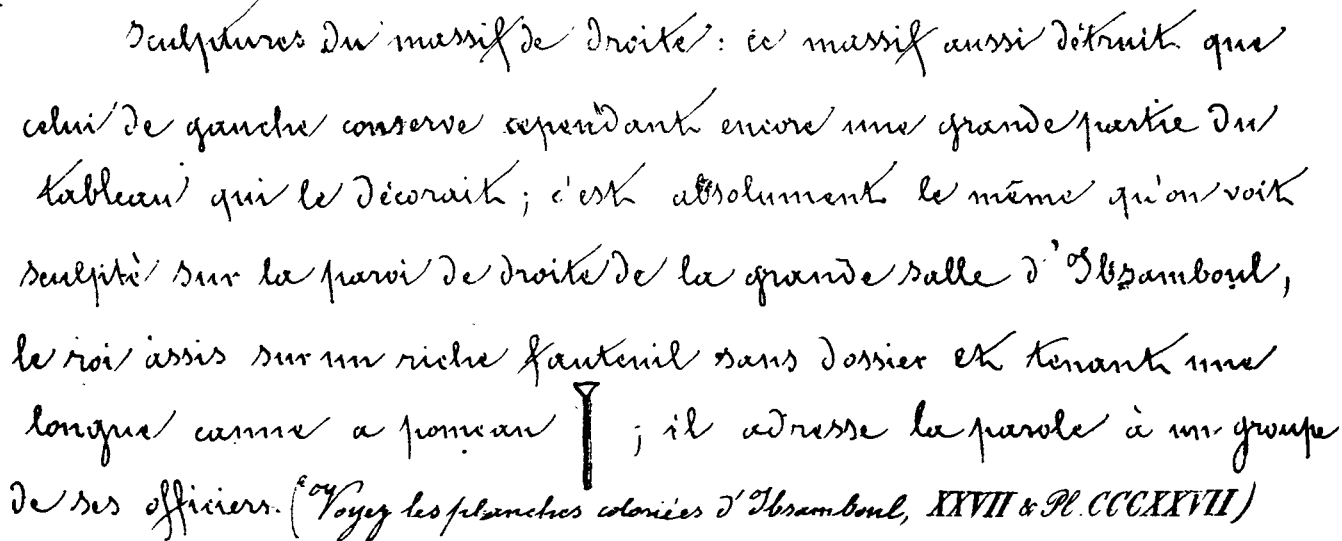 Sculptures du massif de droite : ce massif aussi détruit que
celui de gauche conserve cependant encore une grande partie du
tableau qui le décorait ; c'est absolument le même qu'on voit
sculpté sur la paroi de droite de la grande salle d'Ibsamboul,
le roi assis sur un riche fauteuil sans dossier et tenant une
longue canne a pomeau ; il adresse la parole à un groupe
de ses officiers. (Voyez les planches coloriées d'Ibsamboul, XXVII & Pl. CCCXXVII)